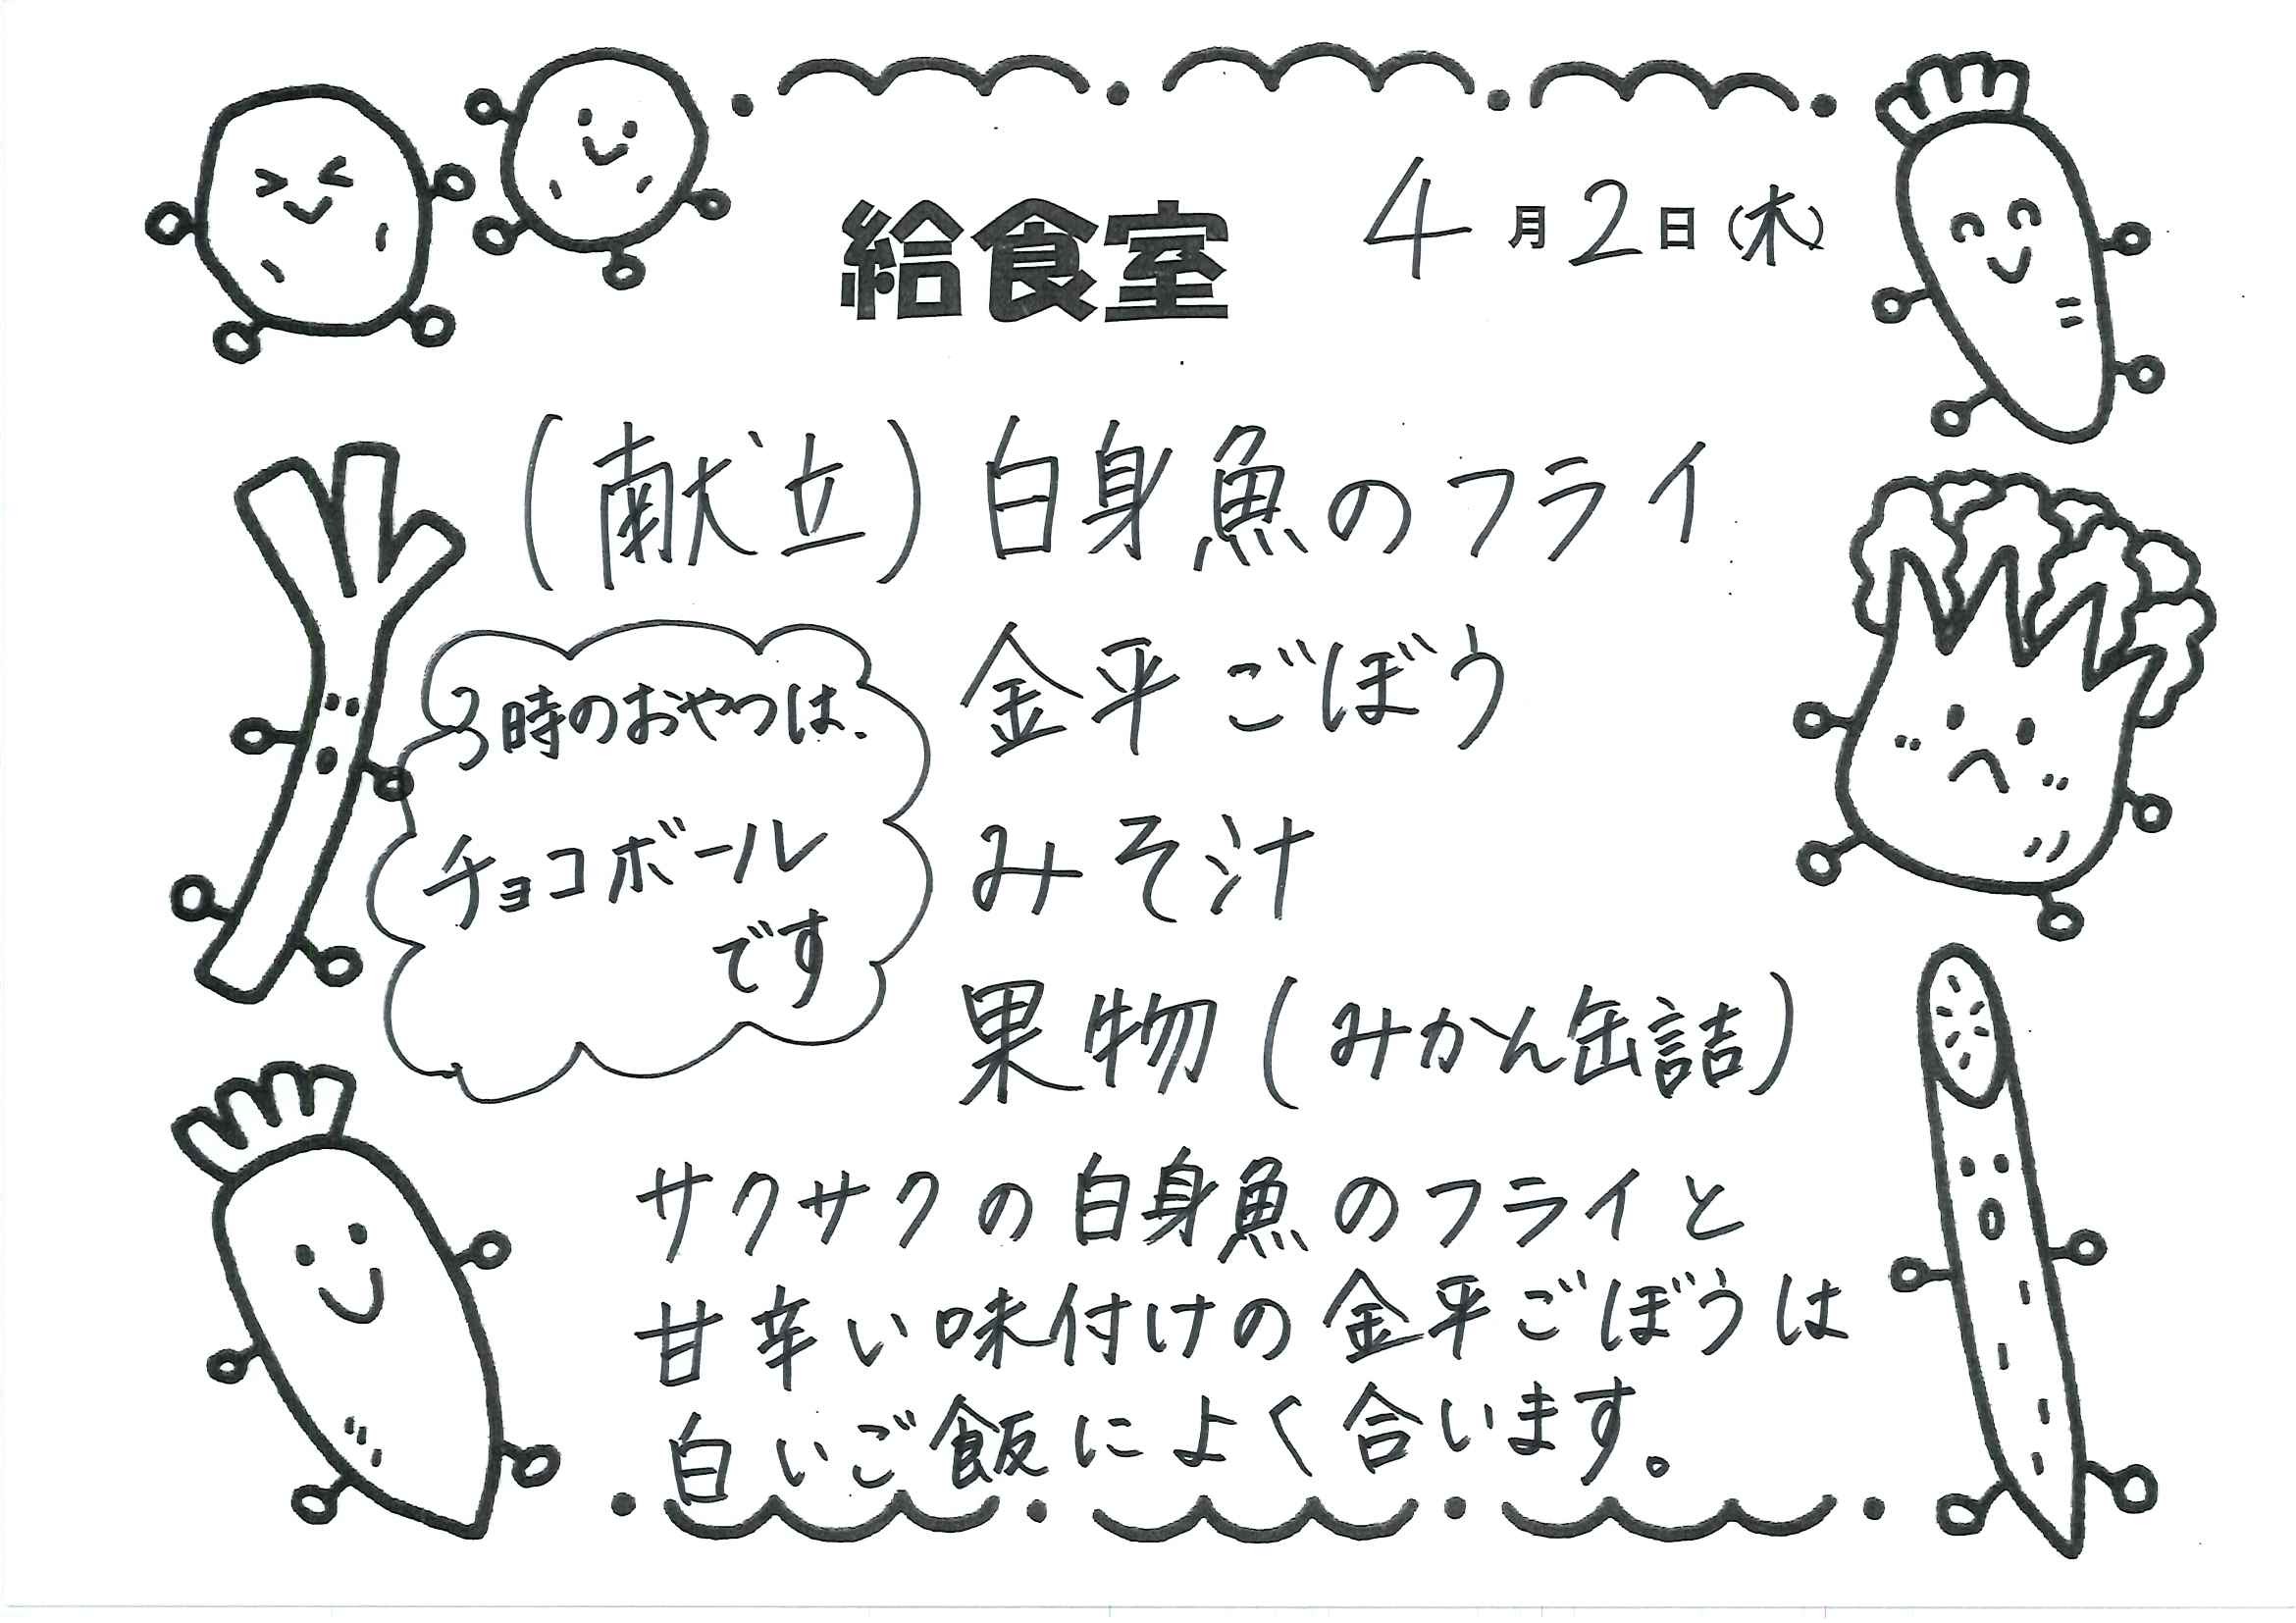 給食室
4月2日(木)
(献立)白身魚のフライ
金平ごぼう
みそ汁
果物(みかん缶詰)
3時のおやつは、
チョコボール
です
サクサクの白身魚のフライと
甘辛い味付けの金平ごぼうは
白いご飯によく合います。